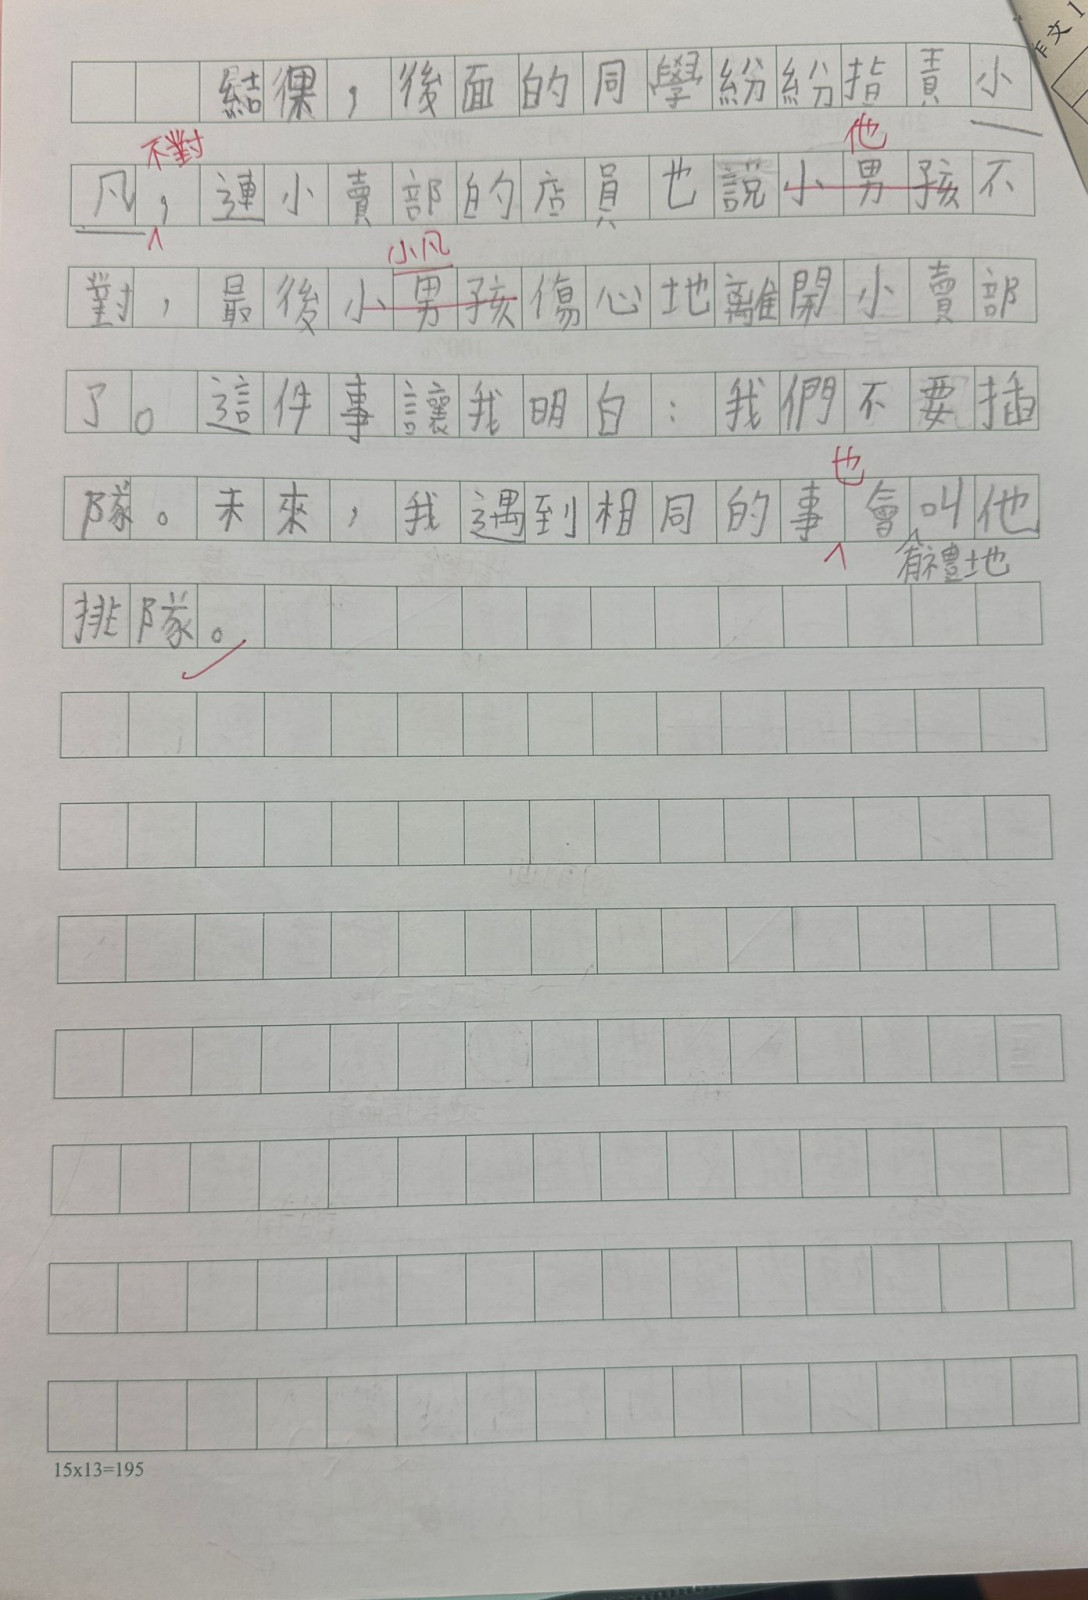 作文1
結果，後面的同學紛紛指責小
不對 他
凡，連小賣部的店員也說小男孩不
小凡
對，最後小男孩傷心地離開小賣部
了。這件事讓我明白：我們不要插
也
隊。未來，我遇到相同的事會叫他
有禮地
排隊。
15x13=195